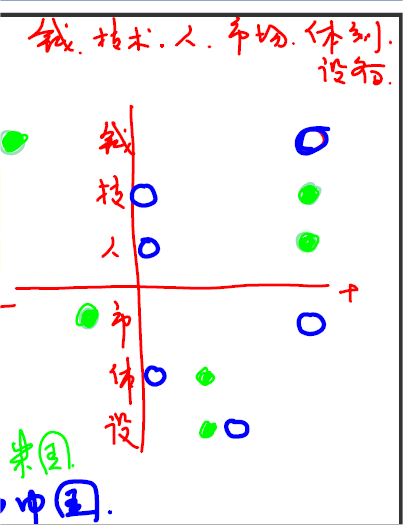 钱.技术.人.市场.体制.
设备.
钱
技
人
- +
市
体
设
美国.
中国.